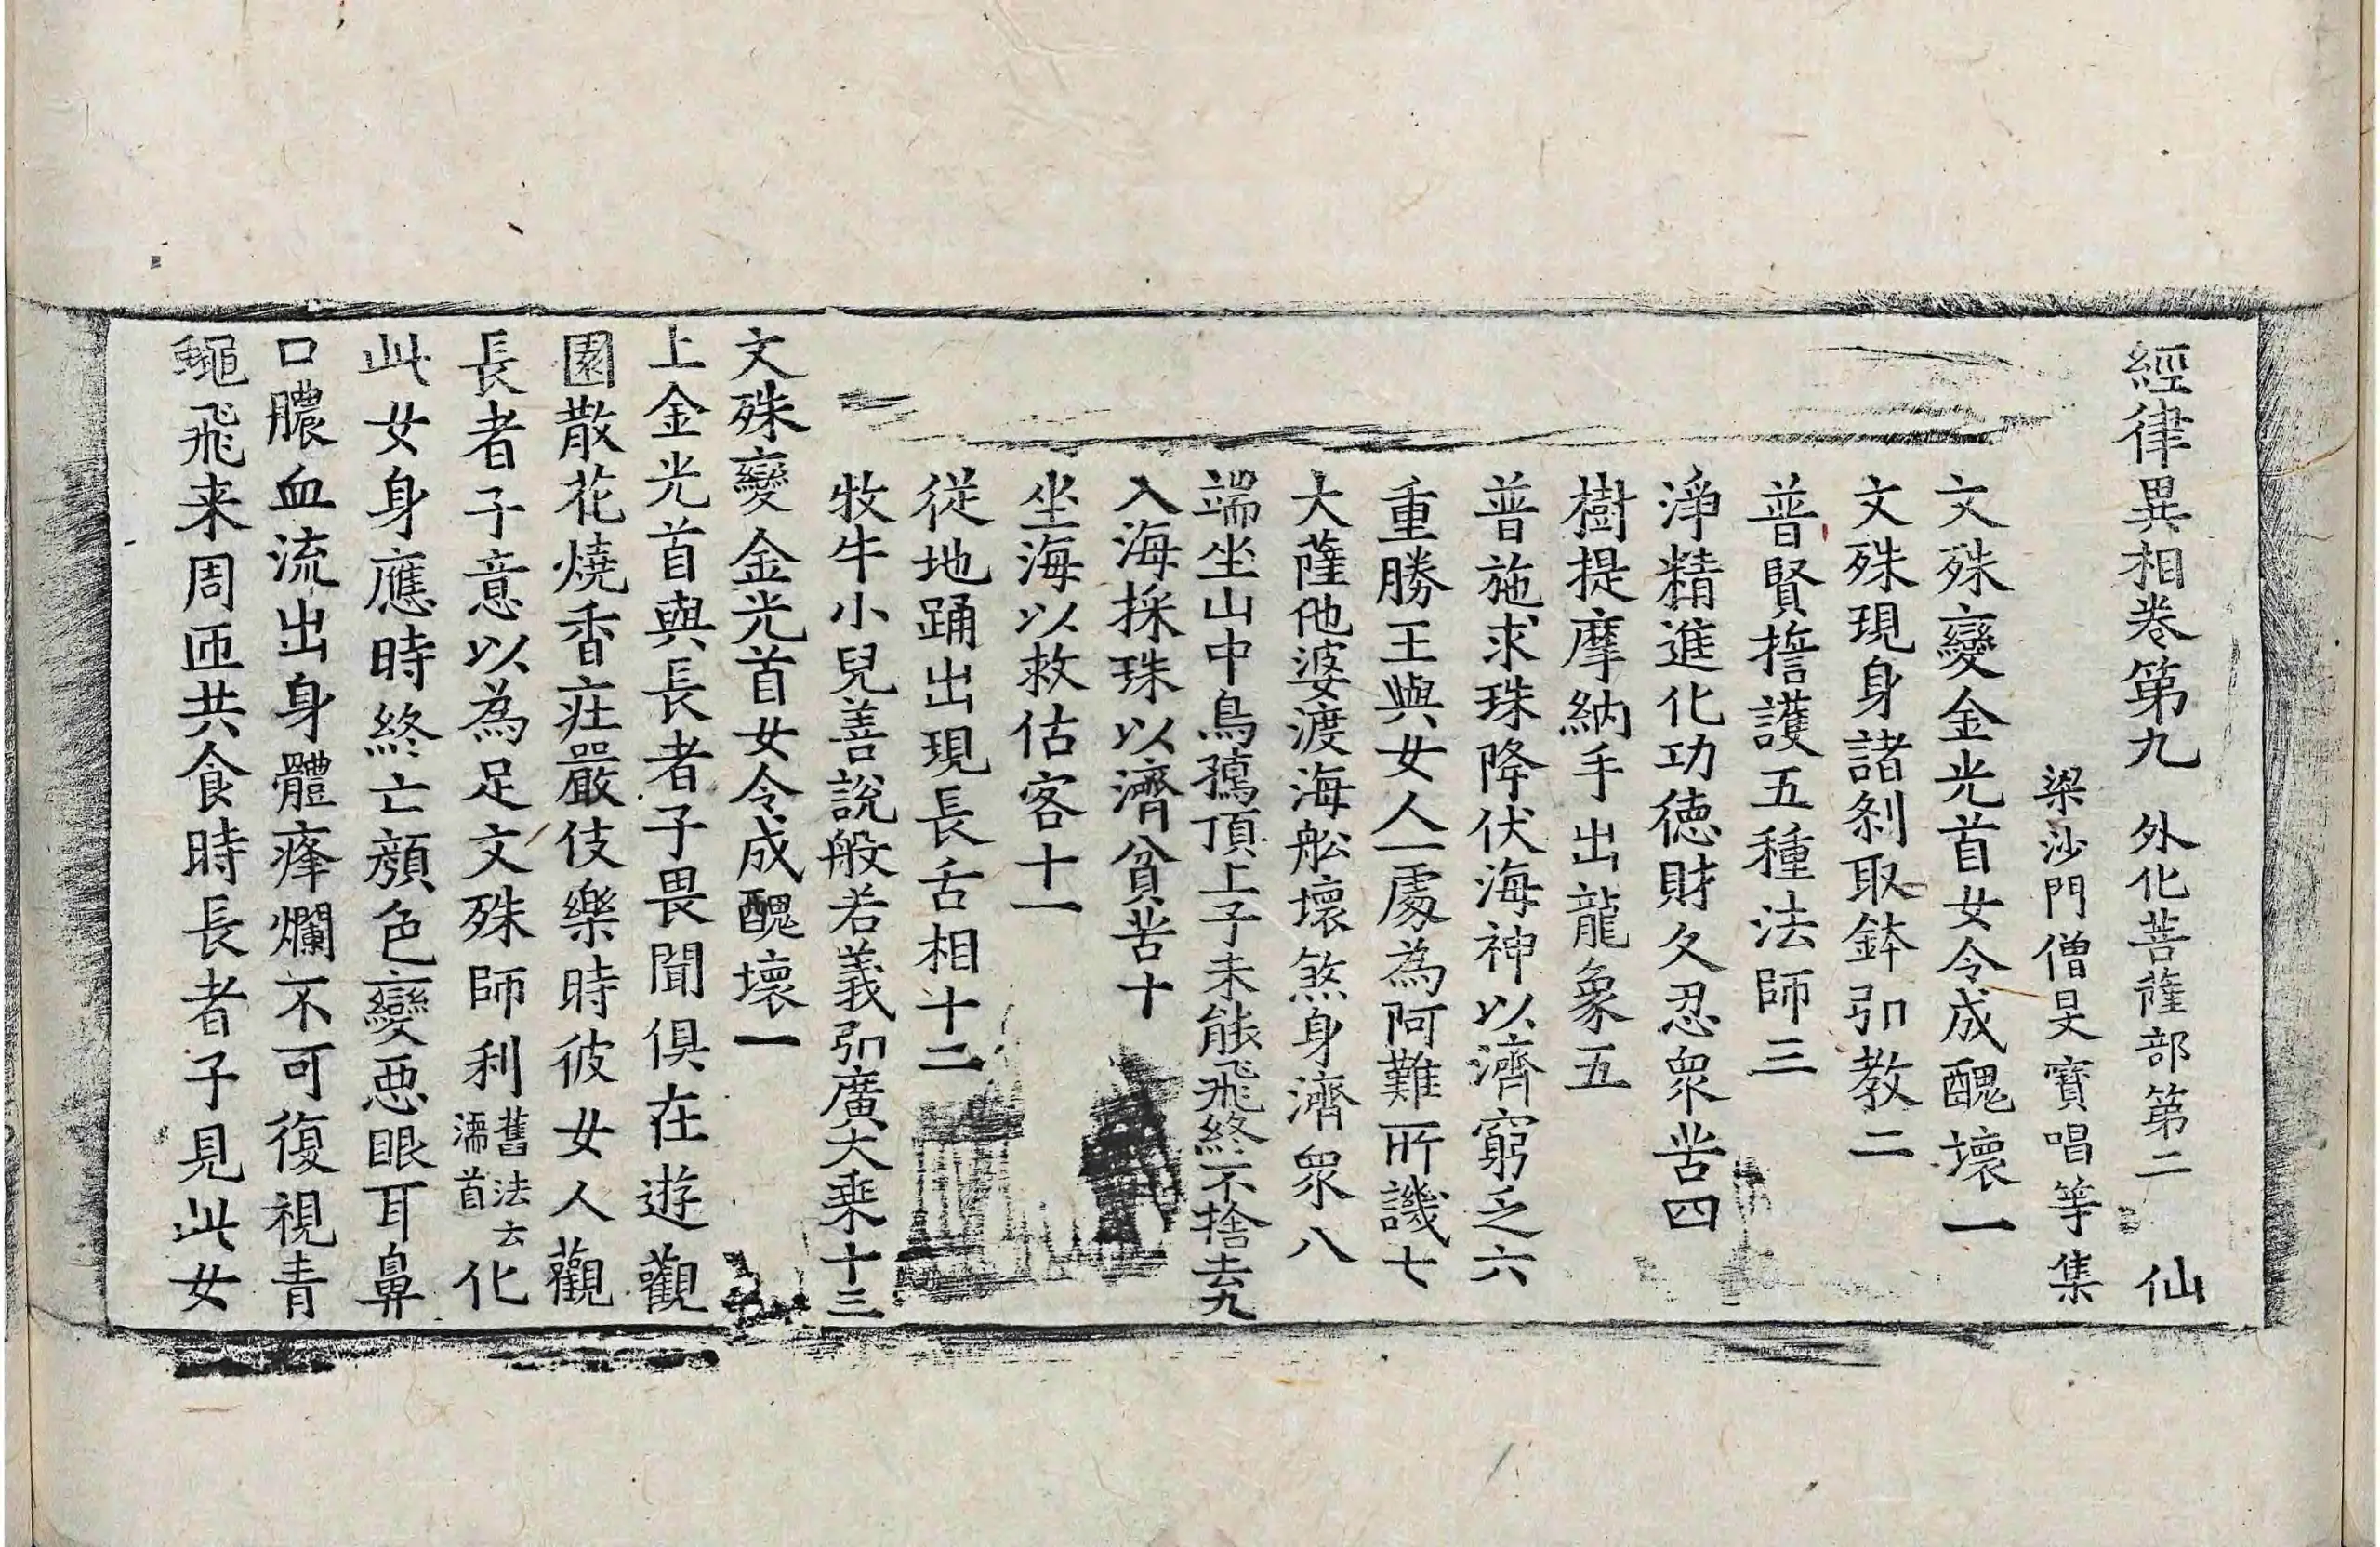 經律異相卷第九 外化菩薩部第二 仙
梁沙門僧旻寶唱等集
文殊變金光首女令成醜壞一
文殊現身諸剎取鉢引教二
普賢誓護五種法師三
淨精進化功德財久忍衆苦四
樹提摩納手出龍象五
普施求珠降伏海神以濟窮乏六
重勝王與女人一處為阿難所譏七
大薩他婆渡海舩壞煞身濟衆八
端坐山中鳥孺頂上子未能飛終不捨去九
入海採珠以濟貧苦十
坐海以救估客十一
從地踊出現長舌相十二
牧牛小兒善說般若義引廣大乘十三
文殊變金光首女令成醜壞一
上金光首與長者子畏閒俱在遊觀
園散花燒香莊嚴伎樂時彼女人觀
長者子意以為足文殊師利舊法云濡首化
此女身應時終亡顏色變惡眼耳鼻
口膿血流出身體㿈爛不可復視青
蠅飛来周匝共食時長者子見此女